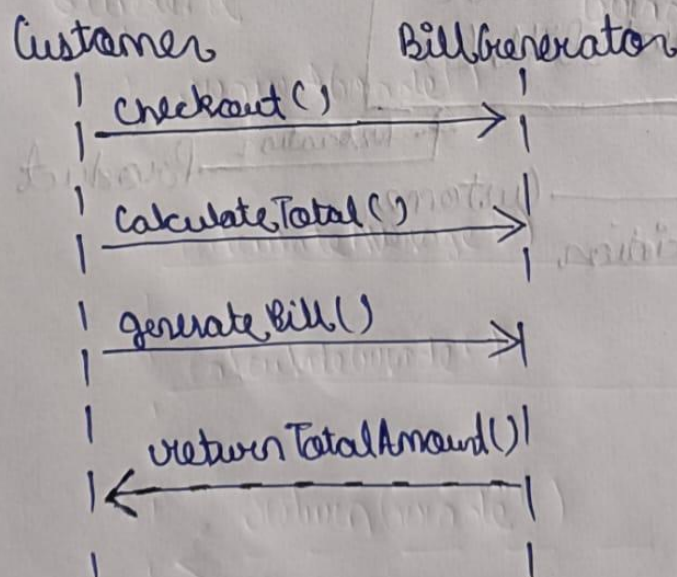 Customer BillGenerator
checkout()
calculateTotal()
generateBill()
returnTotalAmount()